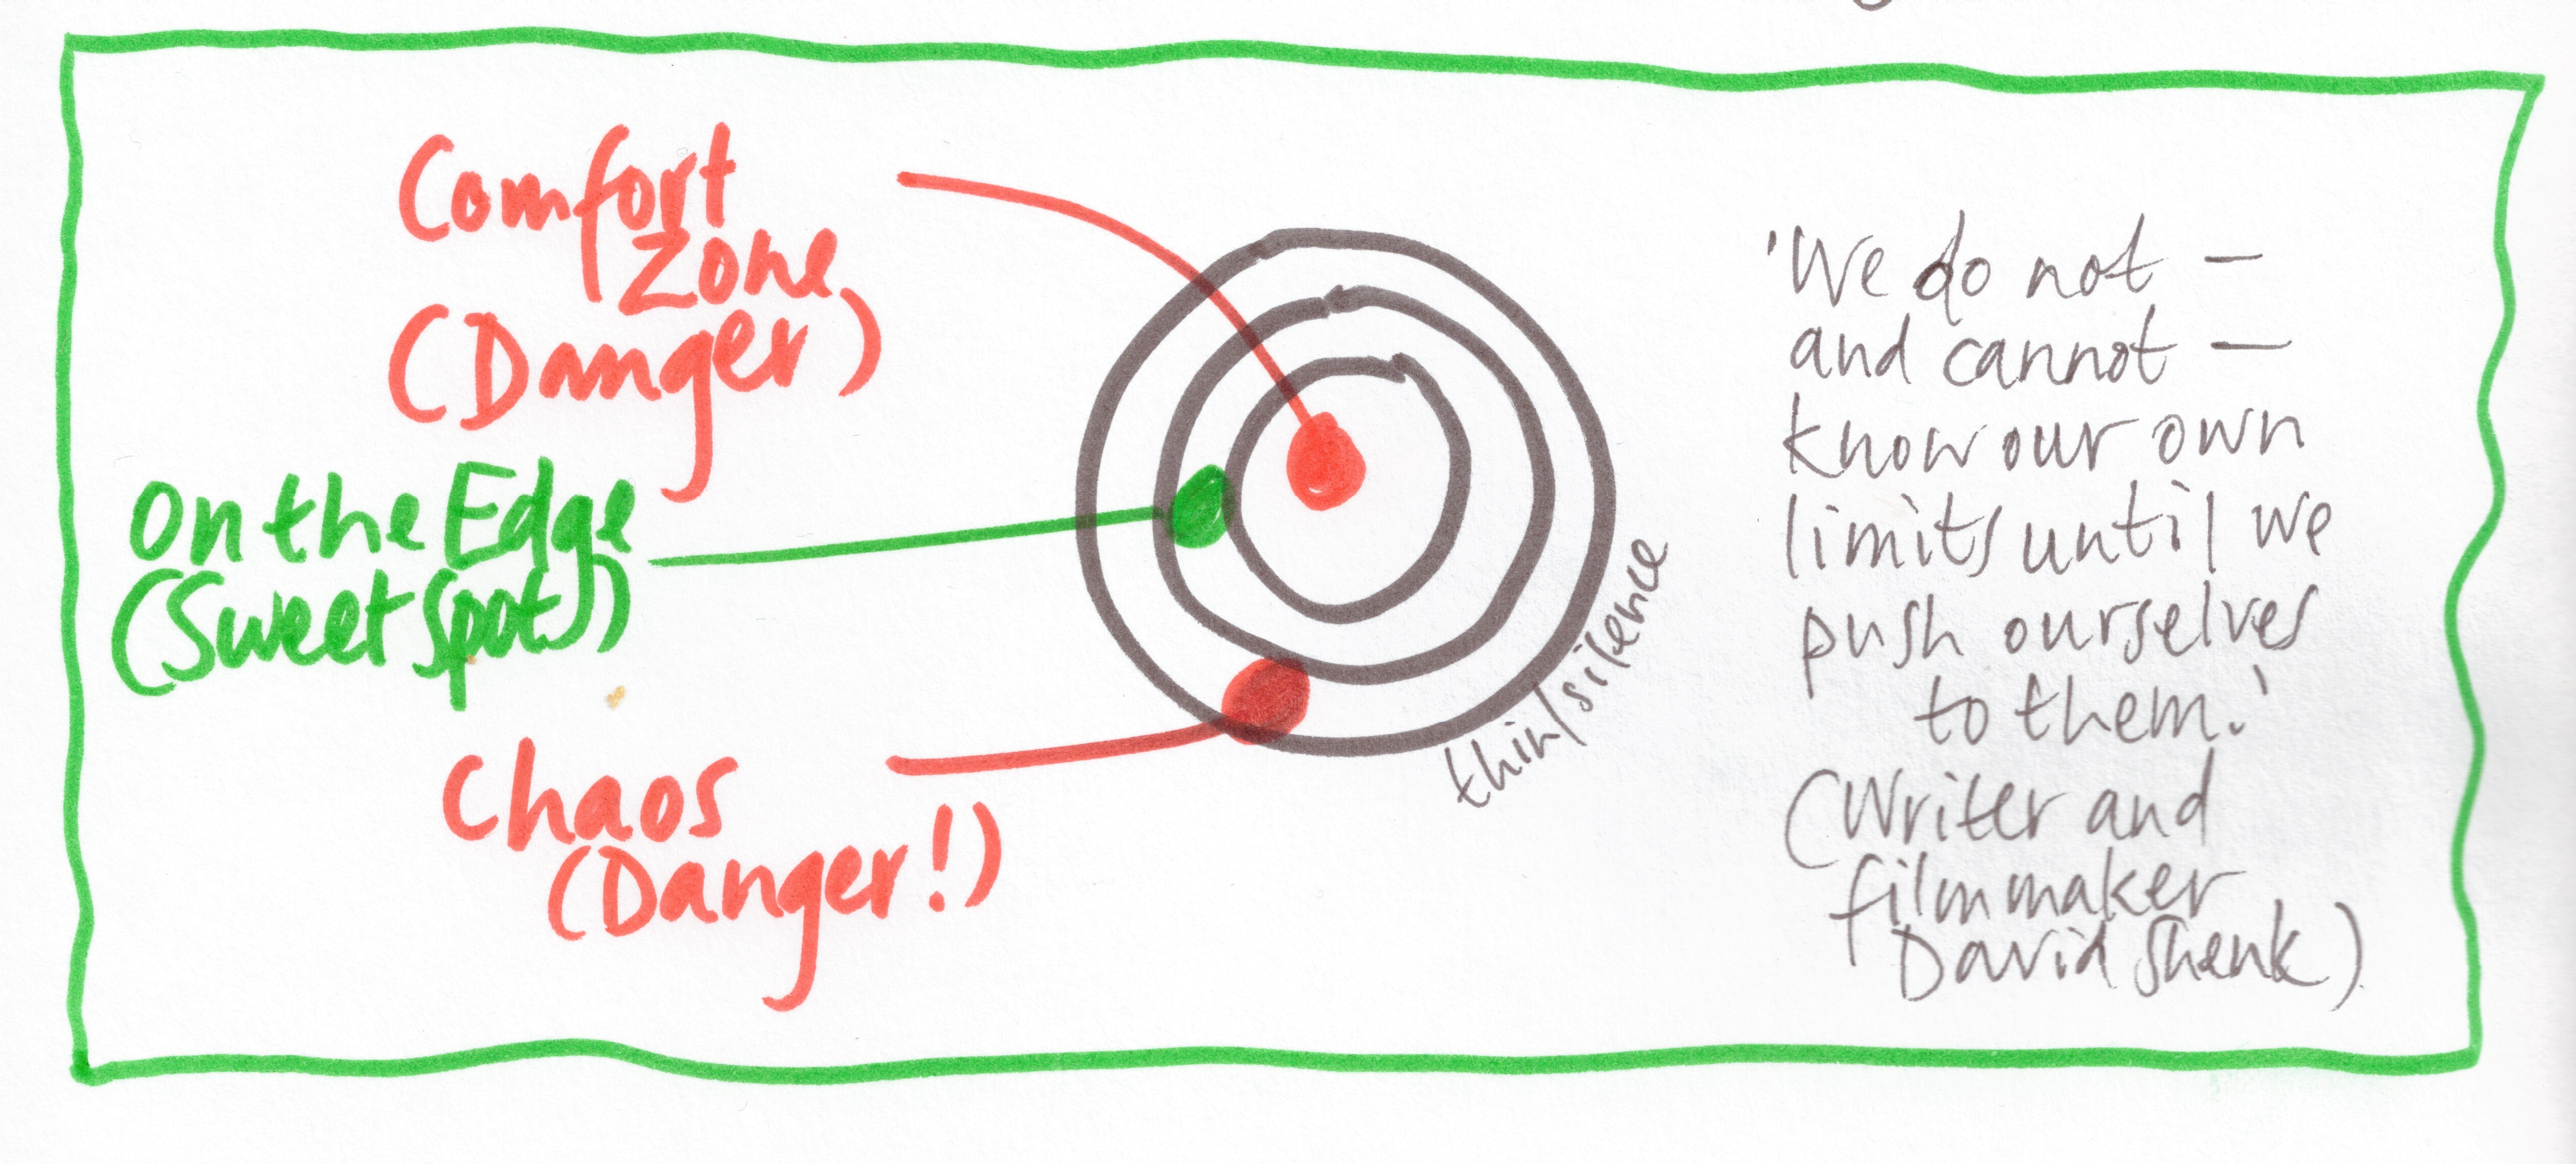 Comfort
Zone
(Danger)
On the Edge
(Sweet Spot)
Chaos
(Danger!)
thin/silence
'We do not –
and cannot –
know our own
limits until we
push ourselves
to them.'
(Writer and
filmmaker
David Shenk)